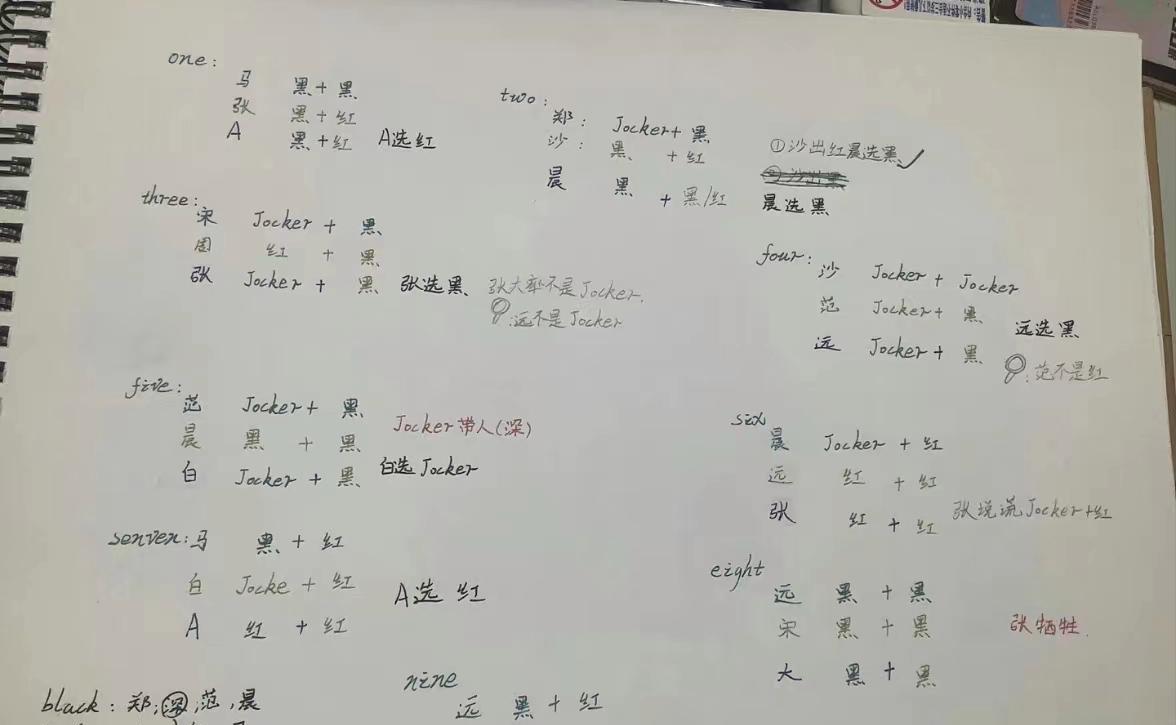 one:
马 黑+黑
张 黑+红
A 黑+红 A选红
two:
郑: Jocker+黑
沙: 黑 +红
①沙出红晨选黑✓
晨 黑 +黑/红 晨选黑
three:
宋 Jocker + 黑
周 红 + 黑
张 Jocker + 黑 张选黑 张大率不是Jocker,
:远不是Jocker
four:
沙 Jocker + Jocker
范 Jocker+ 黑
远选黑
远 Jocker+ 黑
:范不是红
five:
范 Jocker+ 黑
Jocker带人(深)
晨 黑 + 黑
白 Jocker + 黑 白选Jocker
six
晨 Jocker + 红
远 红 + 红
张 红 + 红 张说谎Jocker+红
senven: 马 黑 + 红
白 Jocke + 红
A选红
A 红 + 红
eight
远 黑 + 黑
宋 黑 + 黑 张牺牲.
大 黑 + 黑
nine
远 黑 + 红
black: 郑,深,范,晨